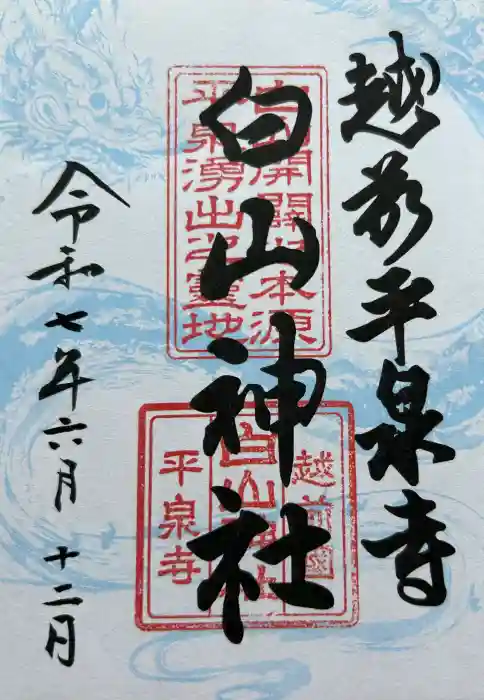 越前平泉寺
白山神社
令和七年六月十二日
白山開闢之本源
平泉湧出之霊地
越前國
白山神社
平泉寺